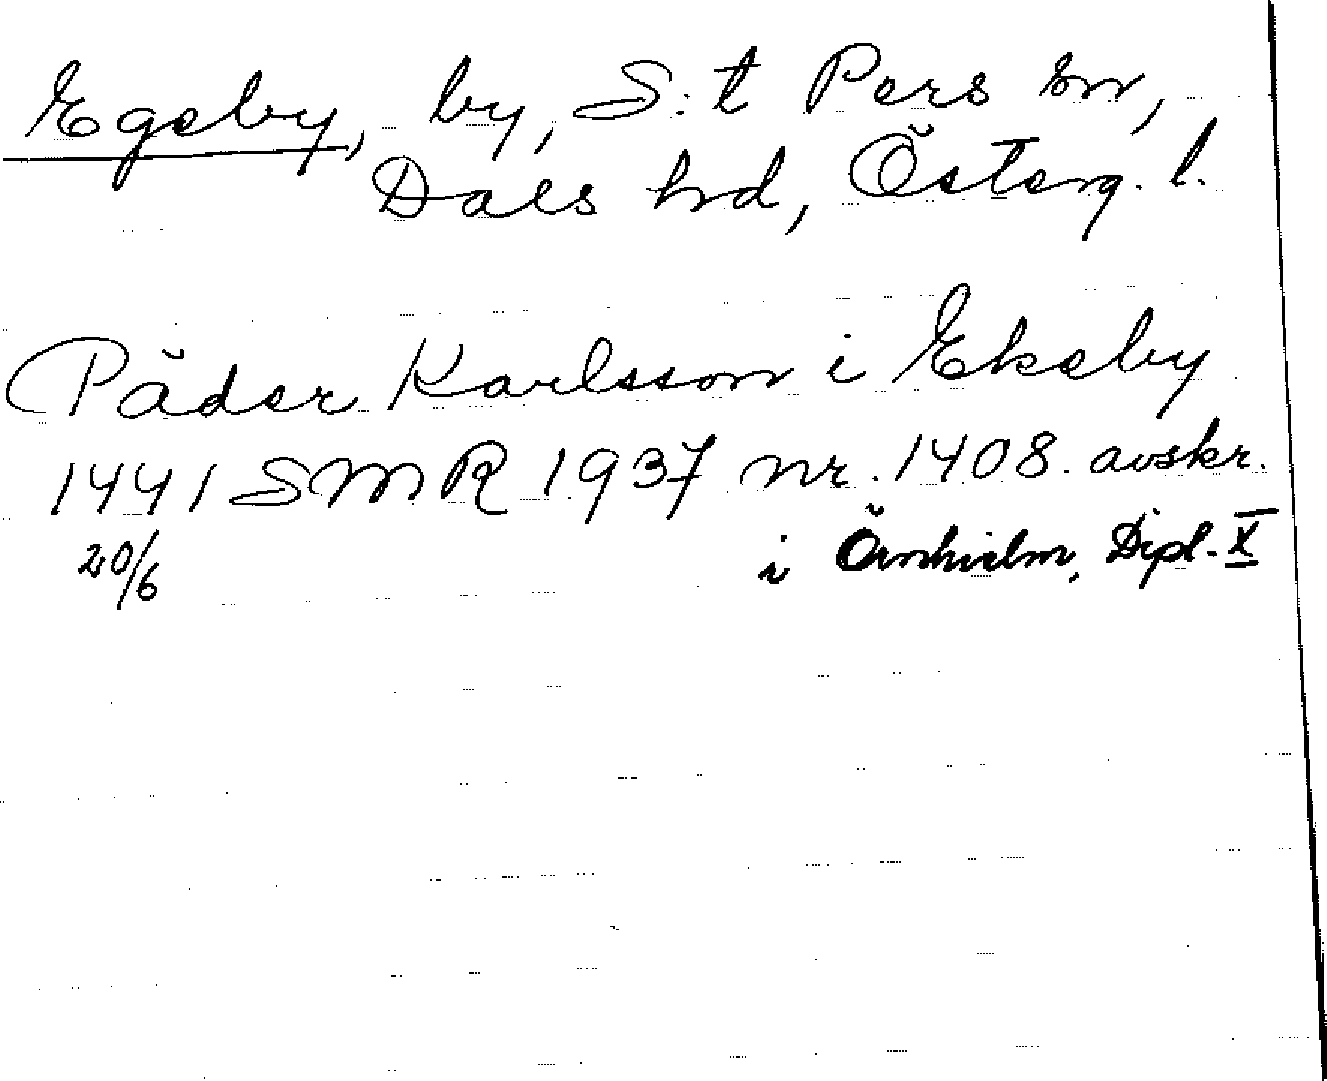 Egeby, by, S:t Pers sn,
Dals hd, Österg. l.
Päder Karlsson i Ekeby
1441 SMR 1937 nr. 1408. avskr.
20/6 i Örnhielm, Dipl. X